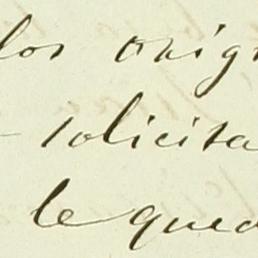 los orig
solicita
le qued